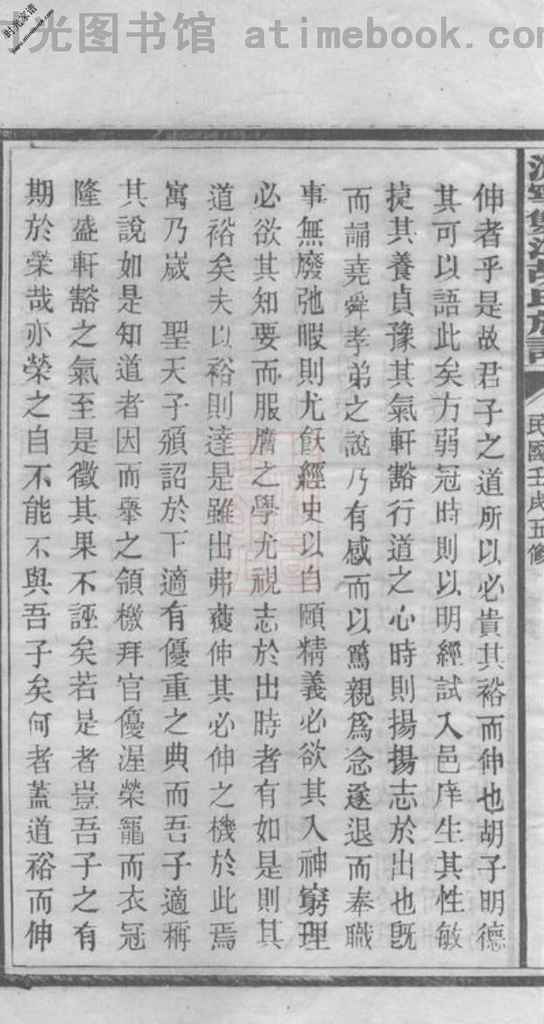 时光图书馆 atimebook.com
氏族譜
民國壬戌五修
伸者乎是故君子之道所以必貴其裕而伸也胡子明德
其可以語此矣方弱冠時則以明經試入邑庠生其性敏
捷其養貞豫其氣軒豁行道之心時則揚揚志於出也旣
而誦堯舜孝弟之說乃有感而以爲親爲念遂退而奉職
事無廢弛暇則尤飫經史以自頤精義必欲其入神窮理
必欲其知要而服膺之學尤視志於出時者有如是則其
道裕矣夫以裕則達是雖出弗獲伸其必伸之機於此焉
寓乃嵗 聖天子頒詔於下適有優重之典而吾子適稱
其說如是知道者因而舉之領檄拜官優渥榮寵而衣冠
隆盛軒豁之氣至是徵其果不誣矣若是者豈吾子之有
期於榮哉亦榮之自不能不與吾子矣何者蓋道裕而伸